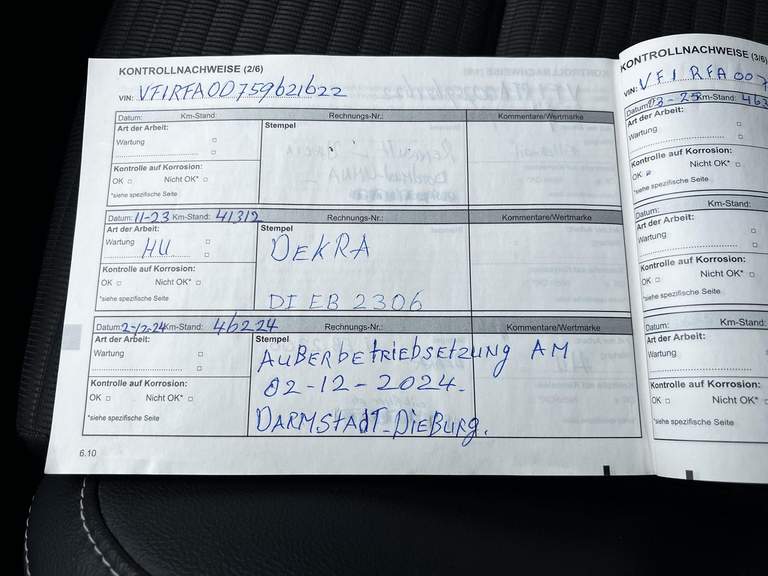 KONTROLLNACHWEISE (2/6)
VIN: VF1RFA00759621622
Datum: Km-Stand: Rechnungs-Nr.: Kommentare/Wertmarke
Art der Arbeit: Stempel
Wartung
Kontrolle auf Korrosion:
OK Nicht OK*
*siehe spezifische Seite
Datum: 11-23 Km-Stand: 41312 Rechnungs-Nr.: Kommentare/Wertmarke
Art der Arbeit: Stempel
Wartung HU DEKRA
Kontrolle auf Korrosion:
OK Nicht OK*
*siehe spezifische Seite DI EB 2306
Datum: 2-12-24 Km-Stand: 46224 Rechnungs-Nr.: Kommentare/Wertmarke
Art der Arbeit: Stempel
Wartung AUßERBETRIEBSETZUNG AM
Kontrolle auf Korrosion: 02-12-2024.
OK Nicht OK*
*siehe spezifische Seite DARMSTADT-DIEBURG.
6.10
KONTROLLNACHWEISE (3/6)
VIN: VF1 RFA007
Datum: 03-25 Km-Stand: 463
Art der Arbeit:
Wartung
Kontrolle auf Korrosion:
OK Nicht OK*
*siehe spezifische Seite
Datum: Km-Stand:
Art der Arbeit:
Wartung
Kontrolle auf Korrosion:
OK Nicht OK*
*siehe spezifische Seite
Datum: Km-Stand:
Art der Arbeit:
Wartung
Kontrolle auf Korrosion:
OK Nicht OK*
*siehe spezifische Seite